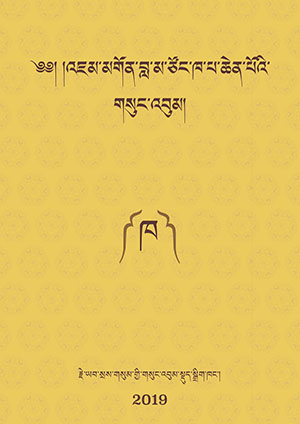 ༄༅། །འཇམ་མགོན་བླ་མ་ཙོང་ཁ་པ་ཆེན་པོའི་
གསུང་འབུམ།
ཁ
རྗེ་ཡབ་སྲས་གསུམ་གྱི་གསུང་འབུམ་སྡུད་སྒྲིག་ཁང་།
2019